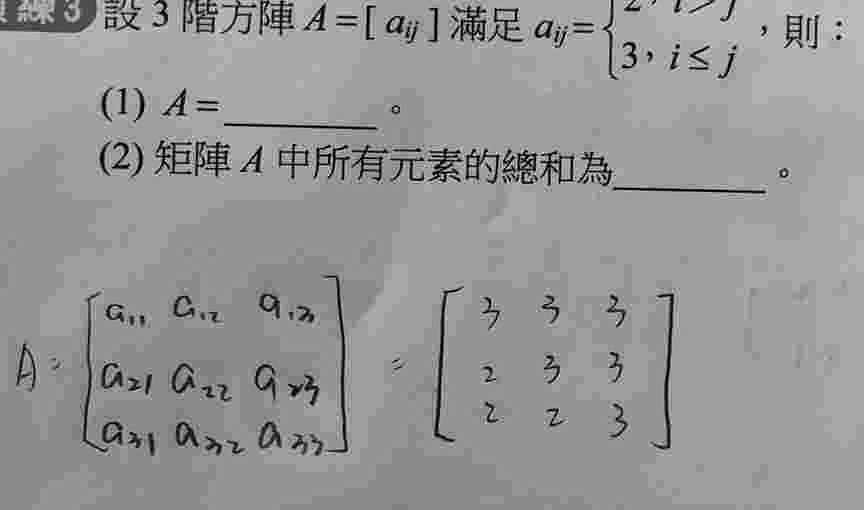 練3 設 3 階方陣 A=[ aij ] 滿足 aij={2, i>j
3, i≤j ,則:
(1) A=________。
(2) 矩陣 A 中所有元素的總和為________。
A = [a11 a12 a13 = [3 3 3
a21 a22 a23 2 3 3
a31 a32 a33] 2 2 3]